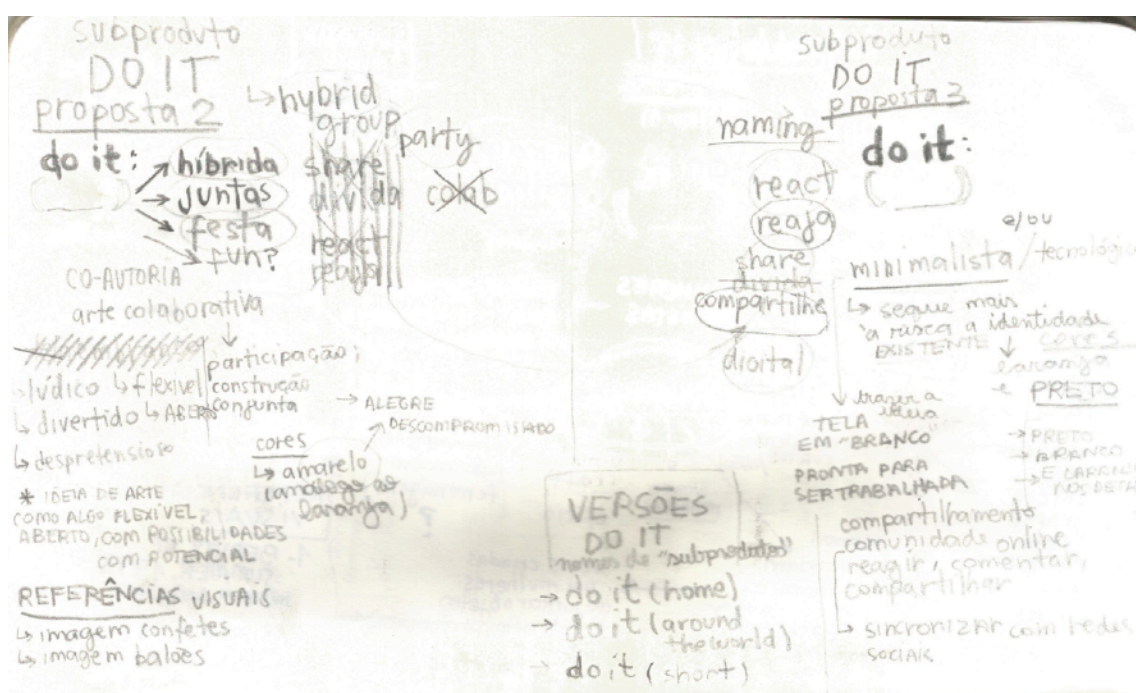 subproduto
DO IT
proposta 2
↳ hybrid
group
party
do it:
→ híbrida
→ juntas
→ festa
→ fun?
share
divida
colab
react
reaja
CO-AUTORIA
arte colaborativa
participação;
construção
conjunta
lúdico ↳ flexível
↳ divertido ↳ ABERTO
↳ despretensioso
→ ALEGRE
DESCOMPROMISSADO
cores
↳ amarelo
(análogo ao
laranja)
* IDEIA DE ARTE
COMO ALGO FLEXÍVEL,
ABERTO, COM POSSIBILIDADES
COM POTENCIAL
REFERÊNCIAS VISUAIS
↳ imagem confetes
↳ imagem balões
VERSÕES
DO IT
nomes de "subprodutos"
→ do it (home)
→ do it (around
the world)
→ do it (short)
subproduto
DO IT
proposta 3
naming
do it:
react
reaja
share
divida
compartilhe
digital
e/ou
minimalista / tecnológic
↳ segue mais
à risca a identidade
EXISTENTE ↓ cores
laranja
e PRETO
trazer a
ideia
TELA
EM "BRANCO"
PRONTA PARA
SER TRABALHADA
→ PRETO
→ BRANCO
→ E LARANJ
NOS DETA
compartilhamento
comunidade online
reagir, comentar,
compartilhar
↳ sincronizar com redes
sociais